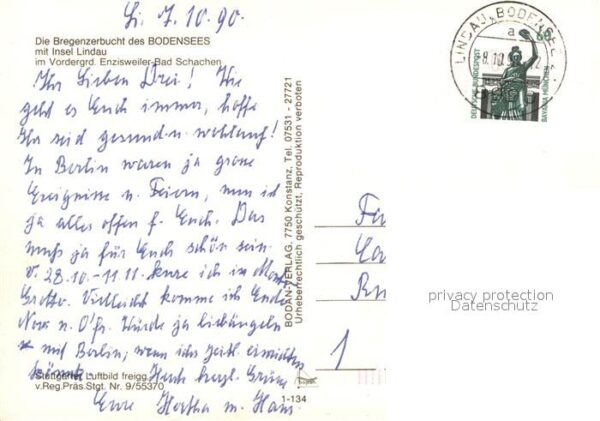 Li. 7.10.90.
Die Bregenzerbucht des BODENSEES
mit Insel Lindau
im Vordergrd. Enzisweiler-Bad Schachen
Ihr Lieben Drei! Wie
geht es Euch immer, hoffe
Ihr seid gesund u. wohlauf!
In Berlin waren ja grosse
Ereignisse u. Feiern, nun ist
ja alles offen f. Euch. Das
muss ja für Euch schön sein.
v. 28.10.-11.11. kure ich in
Grotto. Vielleicht komme ich Ende
Nov. n. Würde ja liebäugeln
mit Berlin, wenn ich zeitl. einrichten
könnte. Herzl. Grüsse
Eure Hertha m. Hans
Stuttgarter Luftbild freigg.
v. Reg.Präs.Stgt. Nr. 9/55370
1-134
BODAN-VERLAG, 7750 Konstanz, Tel. 07531 - 27721
Urheberrechtlich geschützt, Reproduktion verboten
LINDAU, BODENSEE
a
8.10.9
DEUTSCHE BUNDESPOST
60
BAVARIA MÜNCHEN
1
privacy protection
Datenschutz